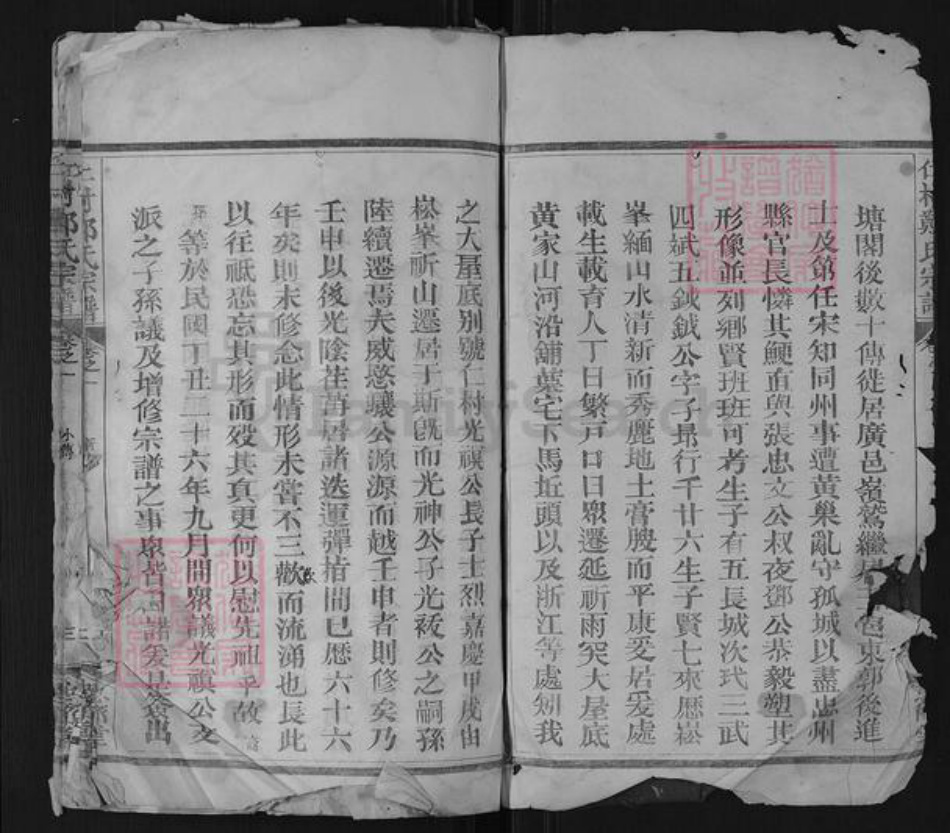 塘閣後數十傳徙居廣邑嶺鷲繼居邑東郭後進
士及第任宋知同州事遭黃巢亂守孤城以盡忠州
縣官長憐其鯁直與張忠文公叔夜鄧公恭毅塑其
形像並列鄉賢班班可考生子有五長城次玳三武
四斌五鉞鉞公字子昻行千廿六生子賢七來歷崧
峯緬山水清新而秀麗地土膏腴而平康爰居爰處
載生載育人丁日繁戶口日眾遷延祈雨突大屋底
黃家山河沿鋪葉宅下馬坵頭以及浙江等處矧我
之大屋底別號仁村光禩公長子士烈嘉慶甲戌由
崧峯祈山遷居于斯旣而光神公子光祓公之嗣孫
陸續遷焉夫威愍驤公源源而越壬申者則修矣乃
壬申以後光陰荏苒居諸迭運彈指間已歷六十六
年矣則未修念此情形未嘗不三歎而流涕也長此
以往祗恐忘其形而歿其真更何以慰先祖乎故
等於民國丁丑二十六年九月開眾議光禩公支
派之子孫議及增修宗譜之事眾皆曰諾爰是僉出
仁村鄭氏宗譜
鄭氏宗譜 卷之一